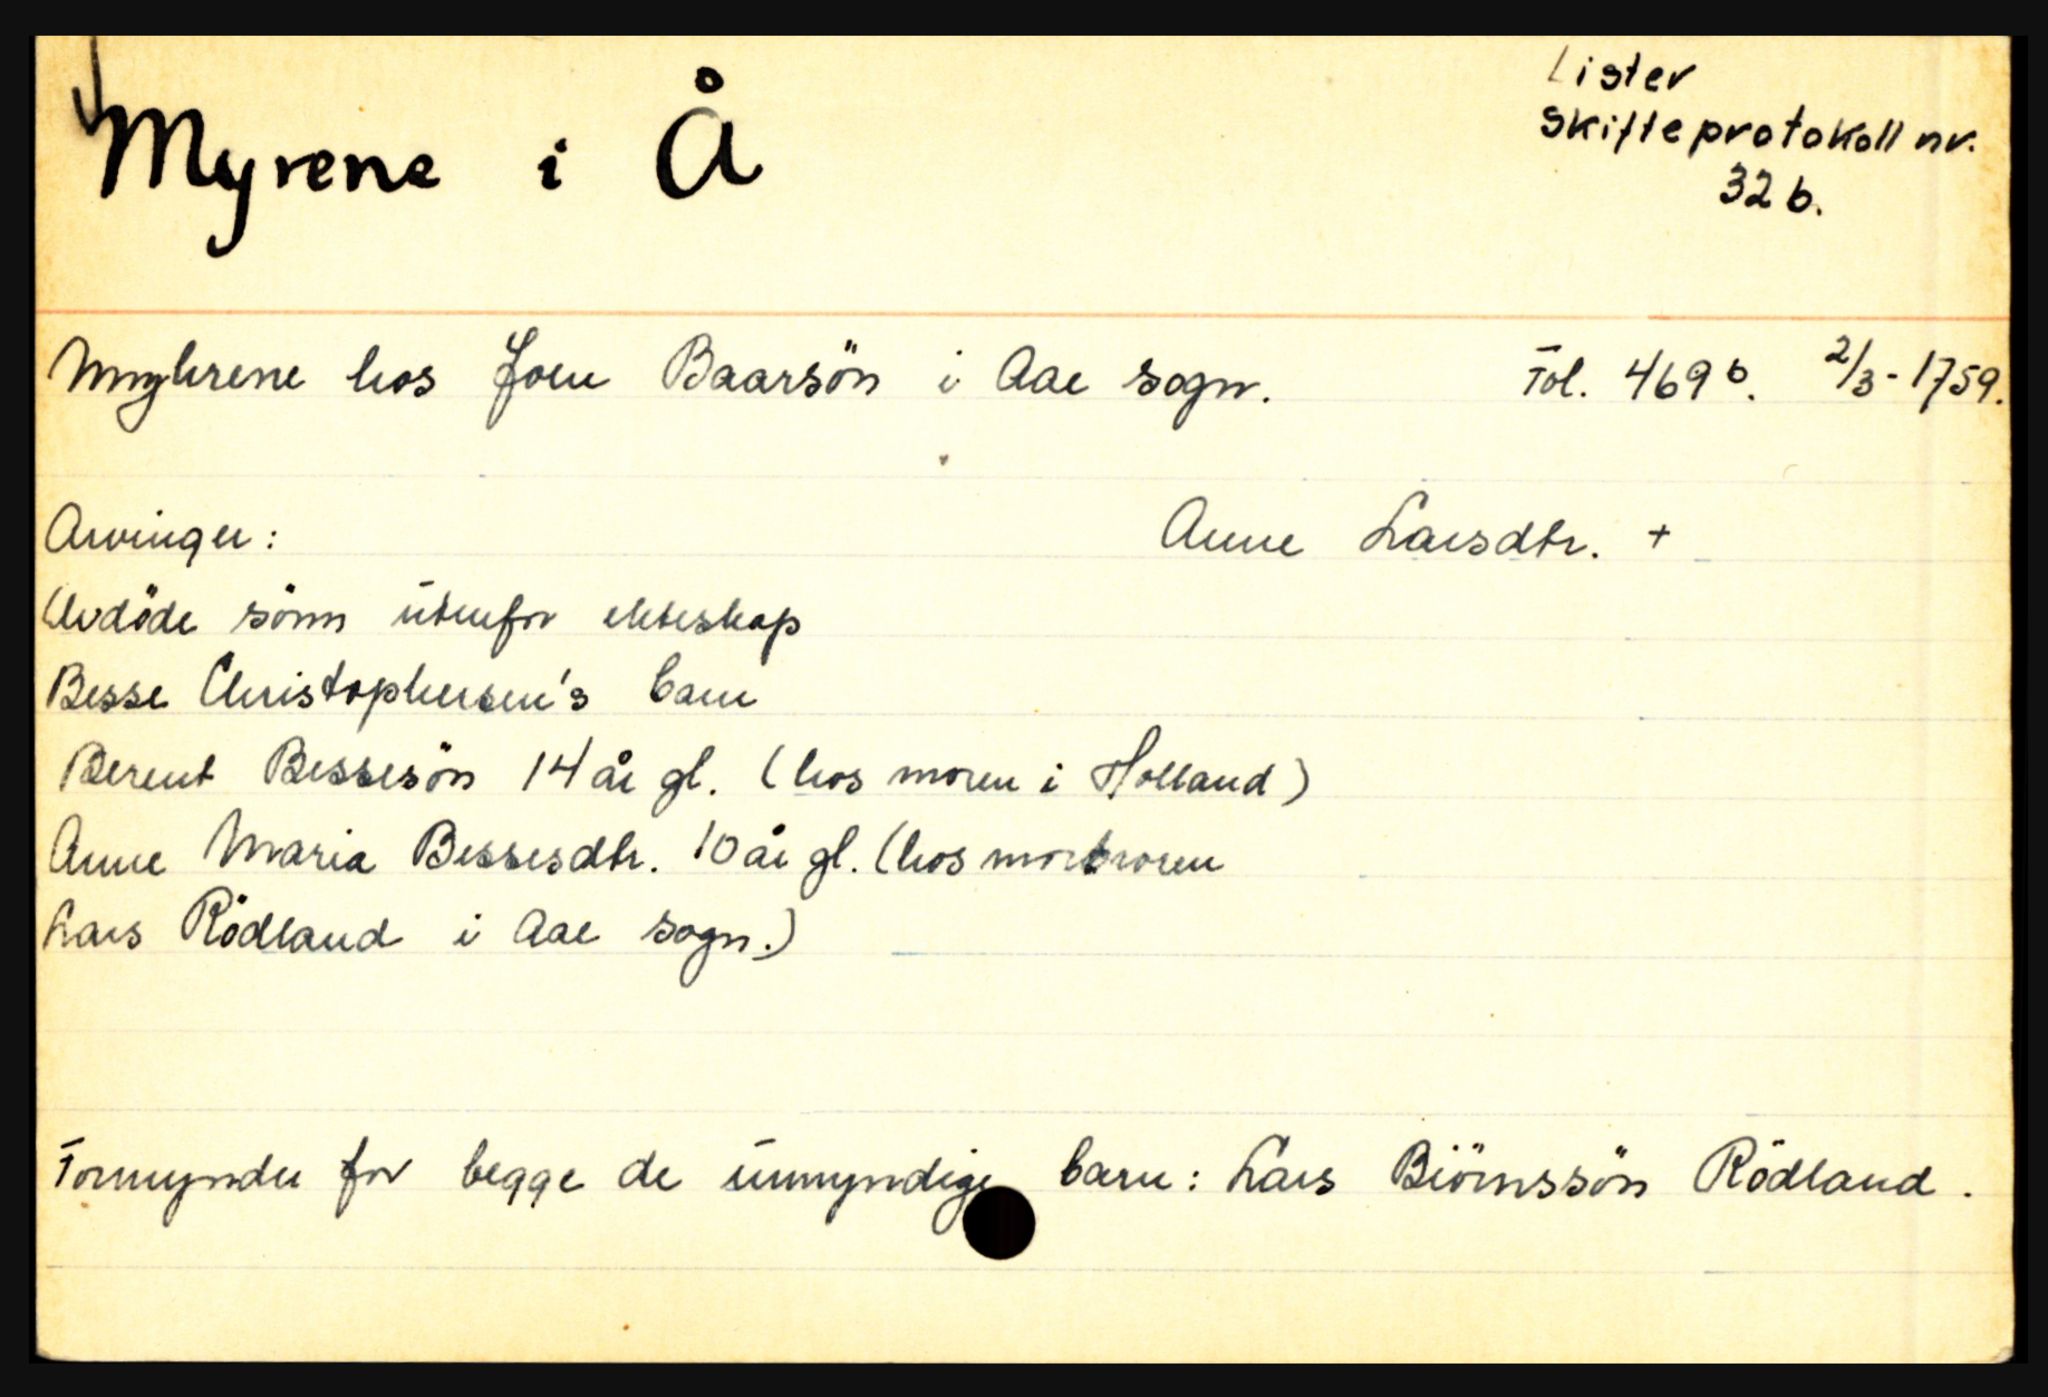 Myrene i Å
Lister
Skifteprotokoll nr.
32 b.
Myhrene hos Joen Baarsön i Aae sogn. Fol. 469 b. 2/3-1759.
Arvinger: Anne Larsdtr. +
Avdöde sönn utenfor ekteskap
Besse Christophersen's barn
Berent Bessesön 14 år gl. (hos moren i Holland)
Anne Maria Bessesdtr. 10 år gl. (hos morbroren
Lars Rödland i Aae sogn.)
Formynder for begge de umyndige barn: Lars Biörnssön Rödland.